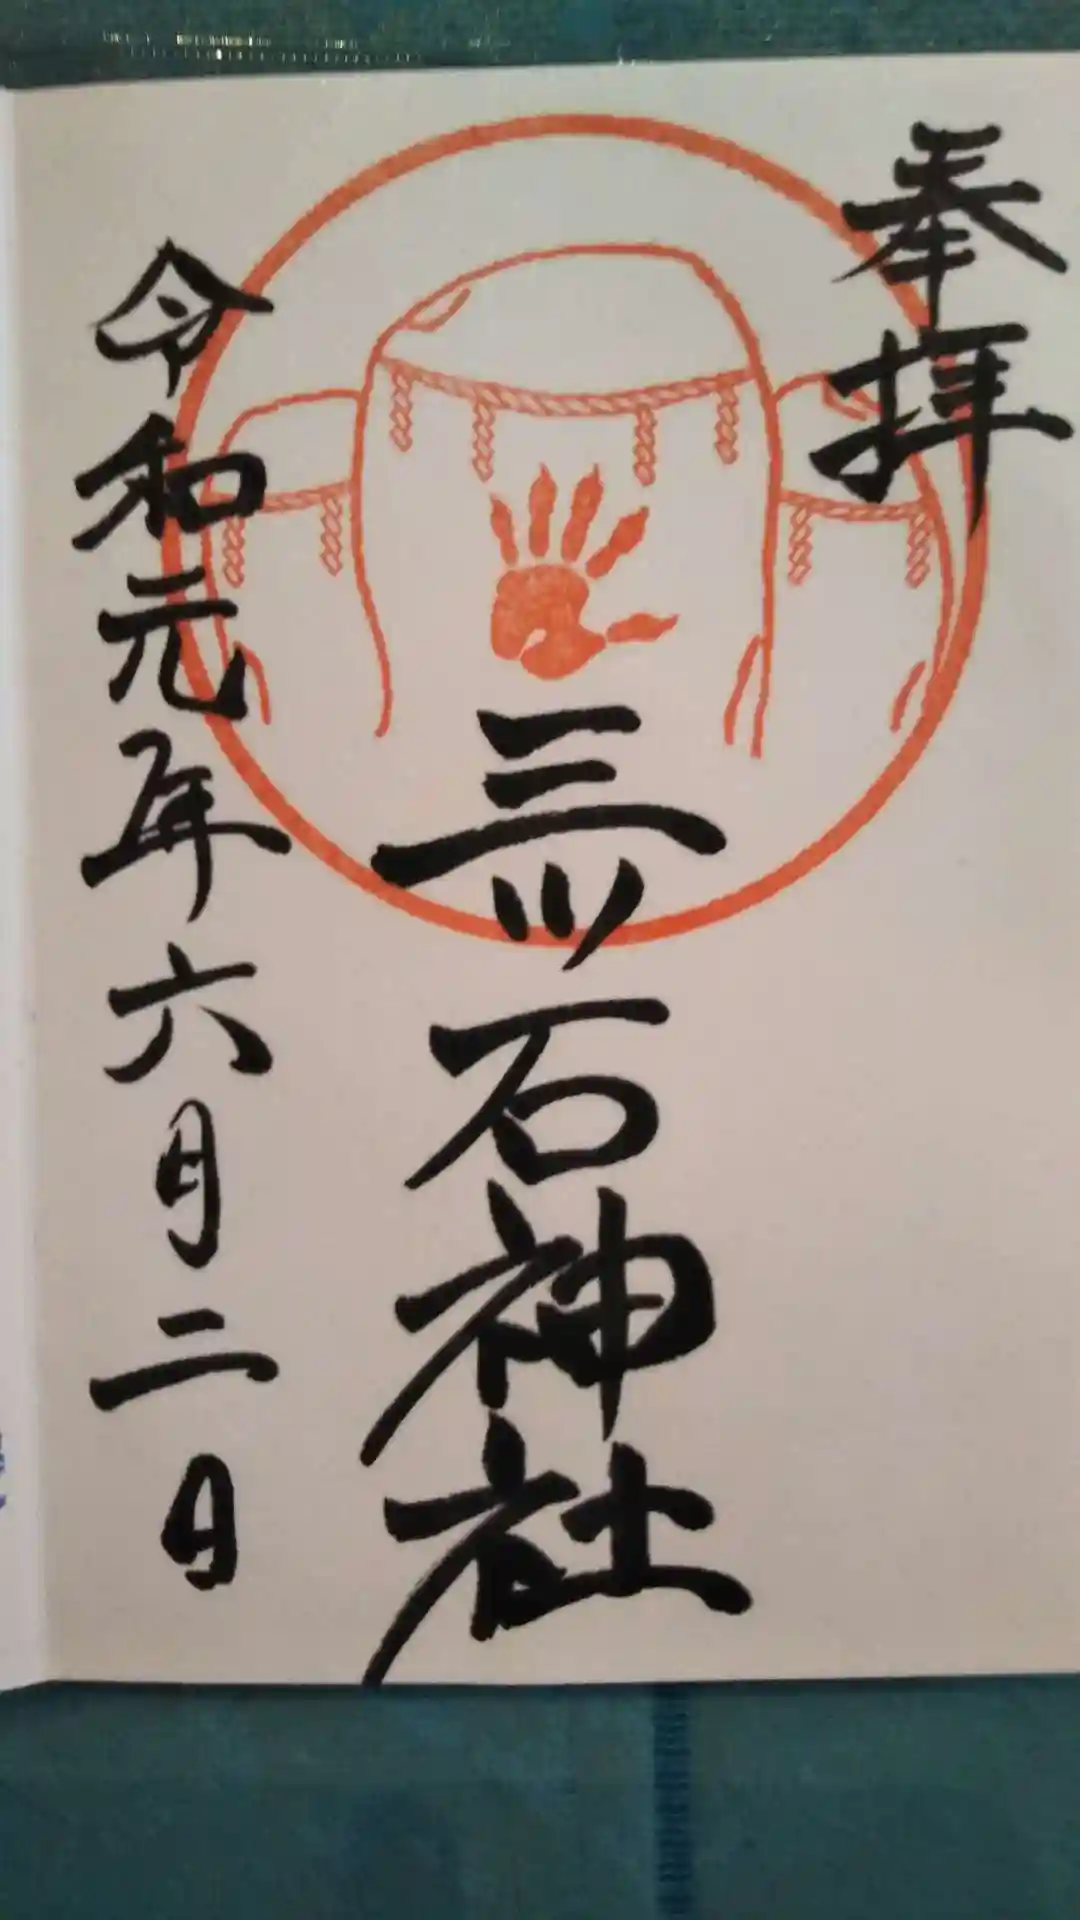 奉拝
三ツ石神社
令和元年六月二日